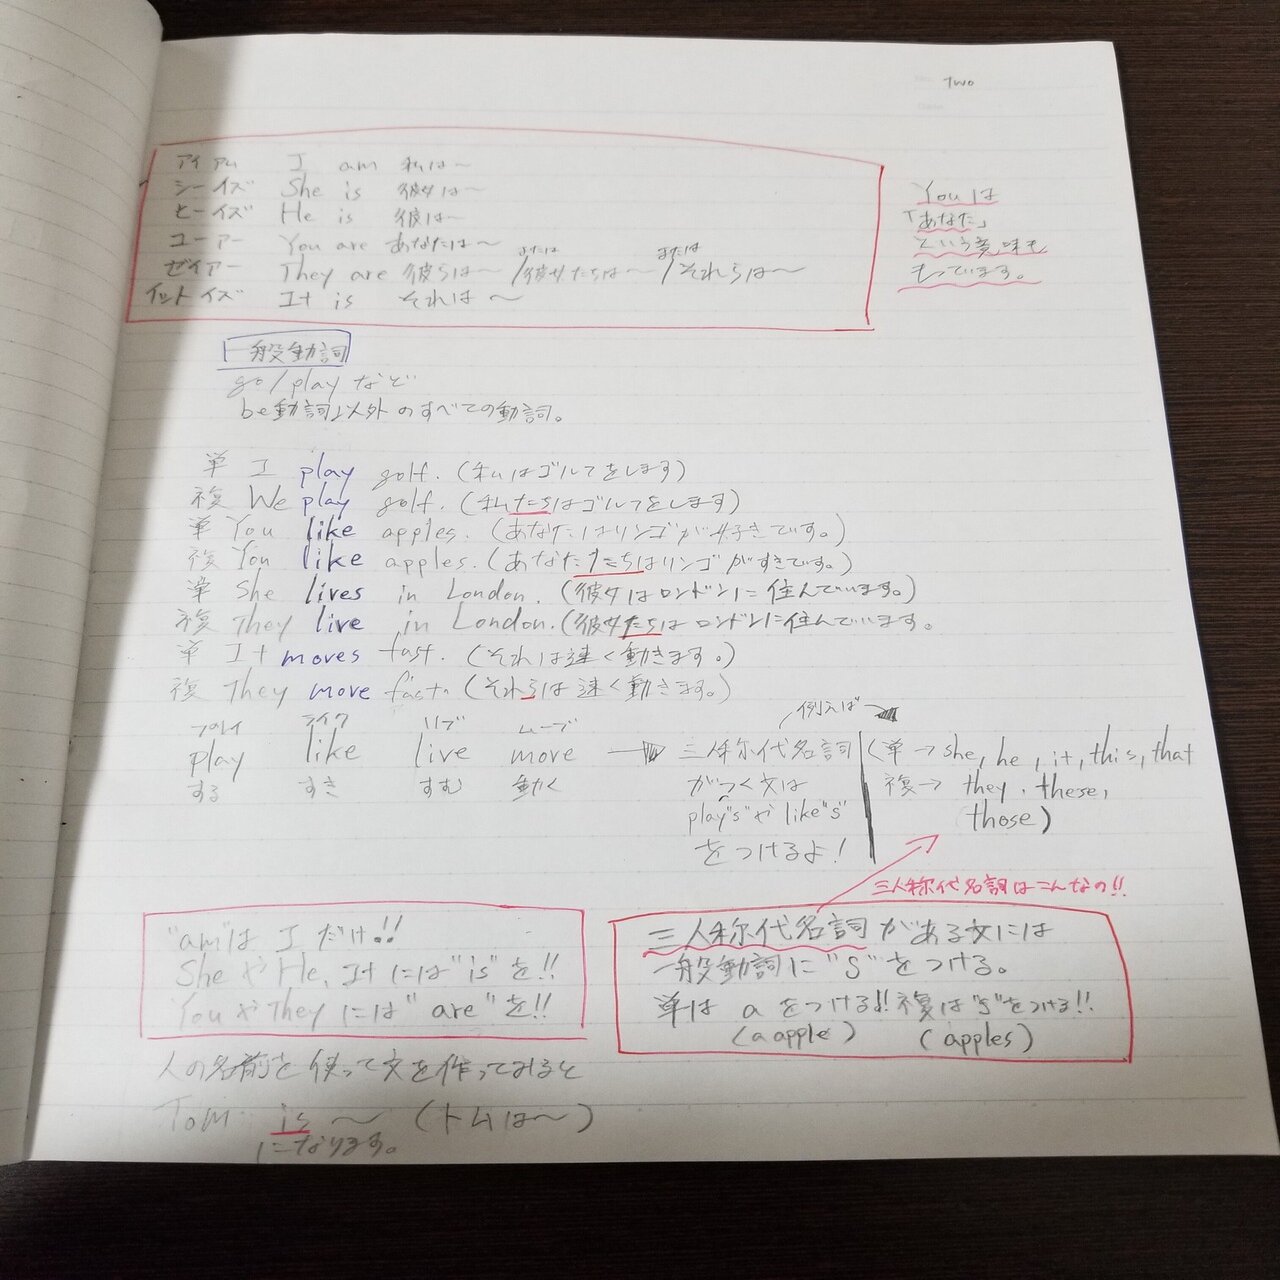 Two
アイアム I am 私は〜
シーイズ She is 彼女は〜
ヒーイズ He is 彼は〜
ユーアー You are あなたは〜
ゼイアー They are 彼らは〜/または彼女たちは〜/またはそれらは〜
イットイズ It is それは〜
Youは
「あなた」
という意味も
もっています。
一般動詞
go/playなど
be動詞以外のすべての動詞。
単 I play golf. (私はゴルフをします)
複 We play golf. (私たちはゴルフをします)
単 You like apples. (あなたはリンゴが好きです。)
複 You like apples. (あなたたちはリンゴがすきです。)
単 She lives in London. (彼女はロンドンに住んでいます。)
複 They live in London. (彼女たちはロンドンに住んでいます。
単 It moves fast. (それは速く動きます。)
複 They move fast. (それらは速く動きます。)
プレイ ライク リブ ムーブ
play like live move
する すき すむ 動く
例えば
三人称代名詞
がつく文は
play"s"やlike"s"
をつけるよ!
(単→she, he, it, this, that
複→ they, these,
those)
三人称代名詞はこんなの!!
"am"は I だけ!!
SheやHe, Itには"is"を!!
YouやTheyには"are"を!!
三人称代名詞がある文には
一般動詞に"S"をつける。
単は aをつける!! 複は"s"をつける!!
(a apple) (apples)
人の名前を使って文を作ってみると
Tom is 〜 (トムは〜)
になります。